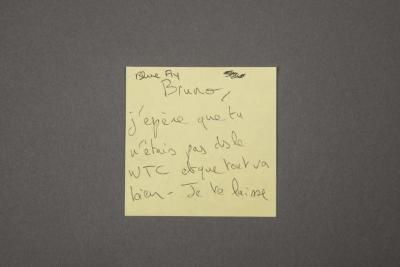 Bruno,
j'épère que tu
n'étais pas ds le
WTC et que tout va
bien - Je te laisse